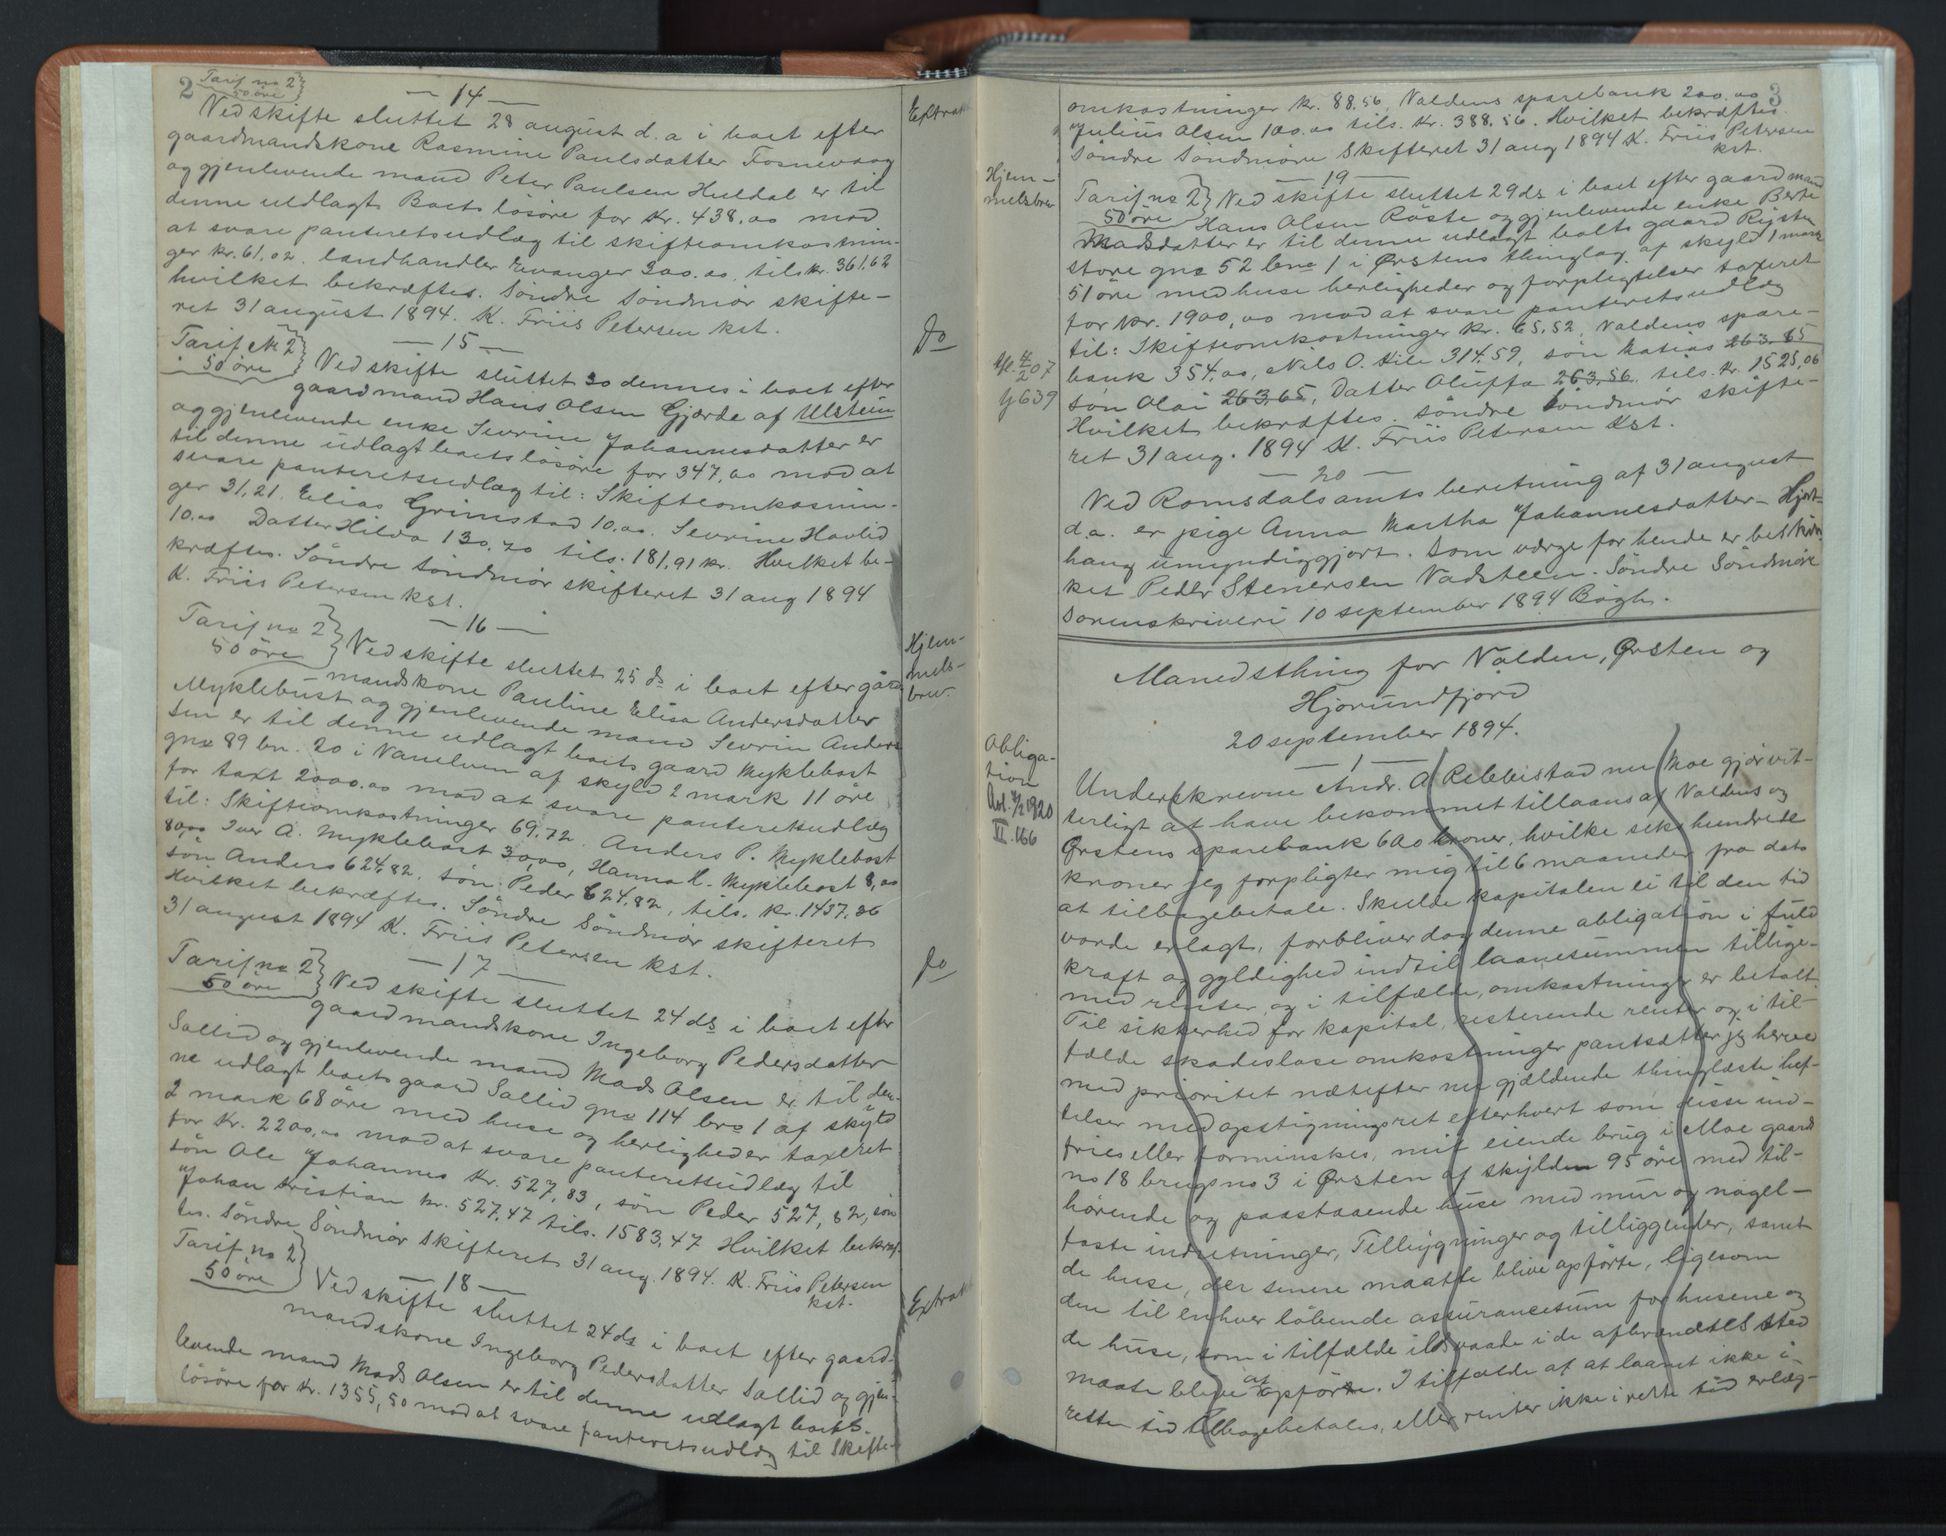 2
Tarif no 2
50 öre
— 14 —
Extrakt
Ved skifte sluttet 28 august d.a i boet efter
gaardmandskone Rasmine Paulsdatter Fosnevaag
og gjenlevende mand Peter Paulsen Huldal er til
denne udlagt Boets lösöre for kr. 438,00 mod
at svare panteretsudlæg til skifteomkostnin-
ger kr. 61,02. landhandler Evanger 300.00. tils kr. 361,02
hvilket bekræftes. Söndre Söndmör skifte-
ret 31 august 1894. K. Friis Petersen kst.
Do
— 15 —
Tarif No 2
50 öre
Ved skifte sluttet 30 dennes i boet efter
gaardmand Hans Olsen Gjærde af Ulstein
og gjenlevende enke Sevrine Johannesdatter er
til denne udlagt boets lösöre for 347,00 mod at
svare panteretsudlæg til: Skifteomkosnin-
ger 31,21. Elias Grimstad 10.00. Sevrine Havlid
10.00 Datter Hilda 130,70 tils. 181,91 kr. Hvilket be-
kræftes. Söndre Söndmör skifteret 31 aug 1894
K. Friis Petersen kst.
— 16 —
Tarif no 2
50 öre
Hjem-
mels-
brev.
Ved skifte sluttet 25 ds i boet efter gård
mandskone Pauline Elisa Andersdatter
Myklebust og gjenlevende mand Sevrin Anders
sen er til denne udlagt boets gaard Myklebost
gno 89 bn. 20 i Vanelven af skyld 2 mark 11 öre
for taxt 2000.00 mod at svare panteretsudlæg
til: Skifteomkostninger 69.72. Anders P. Myklebost
80,00 Iver A. Myklebost 30,00, Hanna L. Myklebost 8,00
sön Anders 624,82. sön Peder 624,82, tils. kr. 1437,36
Hvilket bekræftes. Söndre Söndmör skifteret
31 august 1894 K. Friis Petersen kst.
Do
— 17 —
Tarif no 2
50 öre
Ved skifte sluttet 24 ds i boet efter
gaardmandskone Ingeborg Pedersdatter
Sollid og gjenlevende mand Mads Olsen er til den-
ne udlagt boets gaard Sollid gno 114 bro 1 af skyld
2 mark 68 öre med huse og herligheder taxeret
for kr. 2200,00 mod at svare panteretsudlæg til
sön Ole Johannes kr. 527,83, sön Peder 527,82, sön
Johan Kristian kr. 527,47 tils. 1583,47 Hvilket bekræf-
tes. Söndre Söndmör skifteret 31 aug. 1894. K. Friis Petersen
kst.
Tarif no 2
50 öre
— 18 —
Extrakt
Ved skifte sluttet 24 ds i boet efter gaard-
mandskone Ingeborg Pedersdatter Sollid og gjen-
levende mand Mads Olsen er til denne udlagt boets
lösöre for kr. 1355,50 mod at svare panteretsudlæg til Skifte-
3
omkostninger kr. 88.56, Voldens sparebank 200.00
Julius Olsen 100.00 tils. kr. 388,56. Hvilket bekræftes.
Söndre Söndmöre Skifteret 31 aug 1894 K. Friis Petersen
kst.
Hjem-
melsbrev
— 19 —
Tarif no 2
50 öre
Ved skifte sluttet 29 ds i boet efter gaardmand
Hans Olsen Röste og gjenlevende enke Berte
Madsdatter er til denne udlagt boets gaard Rysten
store gno 52 bno 1 i Ørstens thinglag af skyld 1 mark
51 öre med huse herligheder og forpligtelser taxeret
for kr. 1900,00 mod at svare panteretsudlæg
til: Skifteomkostninger kr. 65,52. Voldens spare-
bank 354.00, Nils O. Lile 314.59, sön Matias 263.65
sön Olai 263,65, Datter Oluffa 263,56. tils. kr. 1525,06
Hvilket bekræftes Söndre Söndmör skifte-
ret 31 aug. 1894 K. Friis Petersen kst.
— 20 —
Ved Romsdals amts beretning af 31 august
d.a. er pige Anna Martha Johannesdatter Hjort-
haug umyndiggjort. Som værge for hende er beskik-
ket Peder Stenersen Vadsteen. Söndre Söndmöre
Sorenskriveri 10 september 1894 Bögh.
Manedsthing for Volden, Ørsten og
Hjorundfjord
20 september 1894.
— 1 —
Obliga-
tion
II. 166
Underskrevne Andr. A Rebbestad nu Moe gjör vit-
terligt at have bekommet tillaans af Voldens og
Ørstens sparebank 600 kroner, hvilke sekshundrede
kroner jeg forpligter mig til 6 maaneder fra dato
at tilbagebetale. Skulde kapitalen ei til den tid
vorde erlagt, forbliver dog denne obligation i fuld
kraft og gyldighed indtil laanesummen tillige-
med renter, og i tilfælde, omkostninger er betalt.
Til sikkerhed for kapital, resterende renter og i til-
fælde skadeslöse omkostninger pantsætter jeg herved
med prioritet næst efter nu gjældende thinglæste hef-
telser med opstigningsret efterhvert som disse ind-
fries eller forminskes, mit eiende brug i Moe gaards
no 18 brugsno 3 i Ørsten af skylden 95 öre med til-
hörende og paastaaende huse med mur og nagel-
faste indretninger, Tilbygninger og tilliggender, samt
de huse, der senere maatte blive opförte, ligesom
den til enhver löbende assurancesum for husene og
de huse, som i tilfælde ildsvaade i de afbrændtes sted
maate blive at opföre. I tilfælde af at laanet ikke i
rette tid tilbagebetales, eller renter ikke i rette tid erlæg-